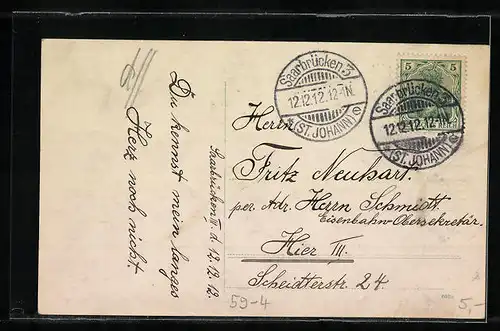 Du kennst mein langes
Herz noch nicht.
Saarbrücken III. d. 12.12.12.
Saarbrücken 3
12.12.12.12-1N.
* (ST. JOHANN) c
5 5
Saarbrücken 3
12.12.12.12-1N.
* (ST. JOHANN) c
Herrn
Fritz Neuhart.
per. Adr. Herrn Schmidt
Eisenbahn-Obersekretär.
Hier III.
Scheidterstr. 24.
59-4
5,-